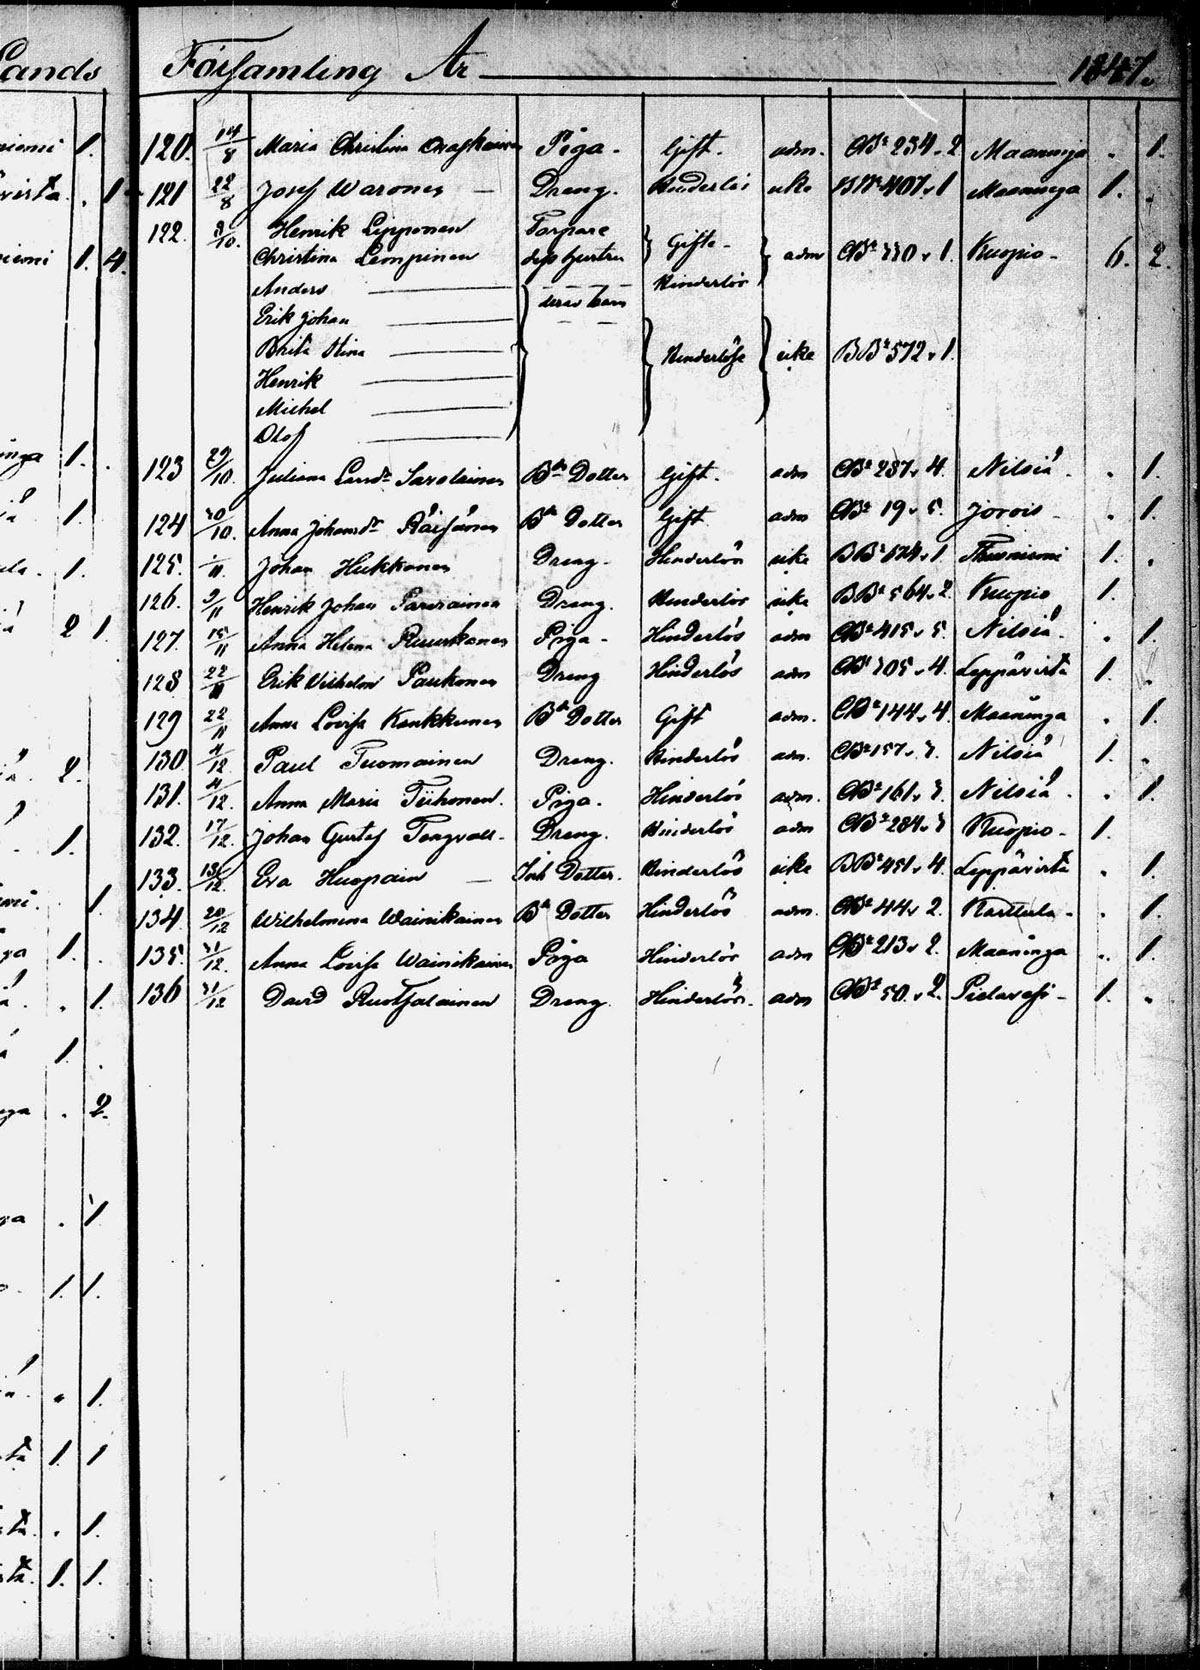 Lands
Församling År 1847.
120. 14/8 Maria Christina Piga. Gift. adm. CB 234. 2 Maaninga . 1.
121 22/8 Josef Waronen Dreng. Hinderlös icke BB 407. 1 Maaninga 1. .
122. 3/10. Henrik Lipponen Torpare
Christina Lempinen dess hustru Gifte adm CB 330. 1. Kuopio 6. 2.
Anders Hinderlös
Erik Johan
Brita Stina Hinderlöse icke BB 572. 1.
Henrik
Michel
Olof
123 29/10. Juliana Savolainen Bde Dotter Gift. adm CB 287. 4. Nilsiä . 1.
124 30/10. Anna Johansdr Räisänen Bde Dotter Gift adm CB 19. 5. Jorois . 1.
125. /11. Johan Hukkanen Dreng. Hinderlös icke BB 574. 1 Thusniemi 1. .
126. 9/11 Henrik Johan Parviainen Dreng. Hinderlös icke BB 564. 2. Kuopio 1.
127. 15/11 Anna Helena Ruuskanen Piga Hinderlös adm CB 415. 5. Nilsiä . 1.
128 22/11 Erik Wilhelm Paukonen Dreng Hinderlös adm CB 305. 4. Leppävirta 1. .
129 22/11 Anna Lovisa Kankkunen Bde Dotter Gift adm. CB 144. 4. Maaninga . 1.
130. 4/12. Paul Tuomainen Dreng. Hinderlös adm. CB 157. 3. Nilsiä 1. .
131. 4/12. Anna Maria Tiihonen. Piga. Hinderlös adm. CB 161. 3. Nilsiä . 1.
132. 17/12. Johan Gustaf Tengvall Dreng. Hinderlös adm CB 284. 3 Kuopio 1.
133. /12. Eva Huopain Inh Dotter. Hinderlös icke BB 451. 4. Leppävirta . 1.
134. 20/12 Wilhelmina Wainikainen Bde Dotter Hinderlös adm. CB 44. 2. Karttula . 1.
135. 31/12. Anna Lovisa Wainikainen Piga Hinderlös adm CB 213. 2. Maaninga . 1.
136 31/12 David Ruotsalainen Dreng. Hinderlös. adm CB 50. 2. Pielavesi 1. .